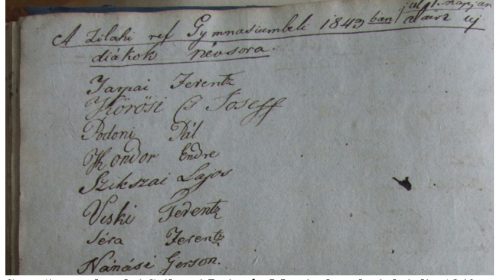 A Zilahi ref Gymnasiumbeli 1843 ban
diákok névsora.
Tarpai Ferentz
Körösi Cs Joseff
Podoni Pál
Kondor Endre
Szikszai Lajos
Viski Ferentz
Séra Ferentz
Nánási Gerson.